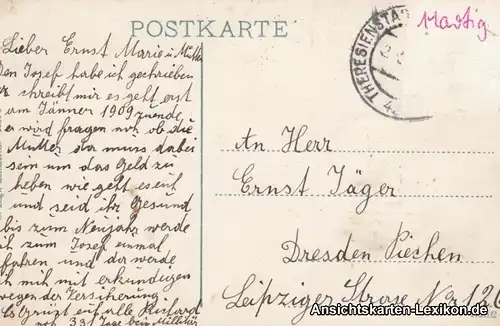 POSTKARTE
Lieber Ernst Marie u. Mutter
Den Josef habe ich geschrieben
er schreibt mir es geht erst
am Jänner 1909 zuende
er word fragen noch ob die
Mutter da murs dabei
sein um das Geld zu
heben wie geht es euch
und seid ihr Gesund
bis zum Neujahr werde
ich zum Josef einmal
fahren und der werde
ich mich mit erkundigen
wegen der Zersicherung.
Es Grüzt euch alle Richard
noch 331 Tage beim Militür
THERESIENSTADT
Martig
An Herr
Ernst Jäger
Dresden Pieshen
Leipziger Strose Nr 126
Ansichtskarten-Lexikon.de